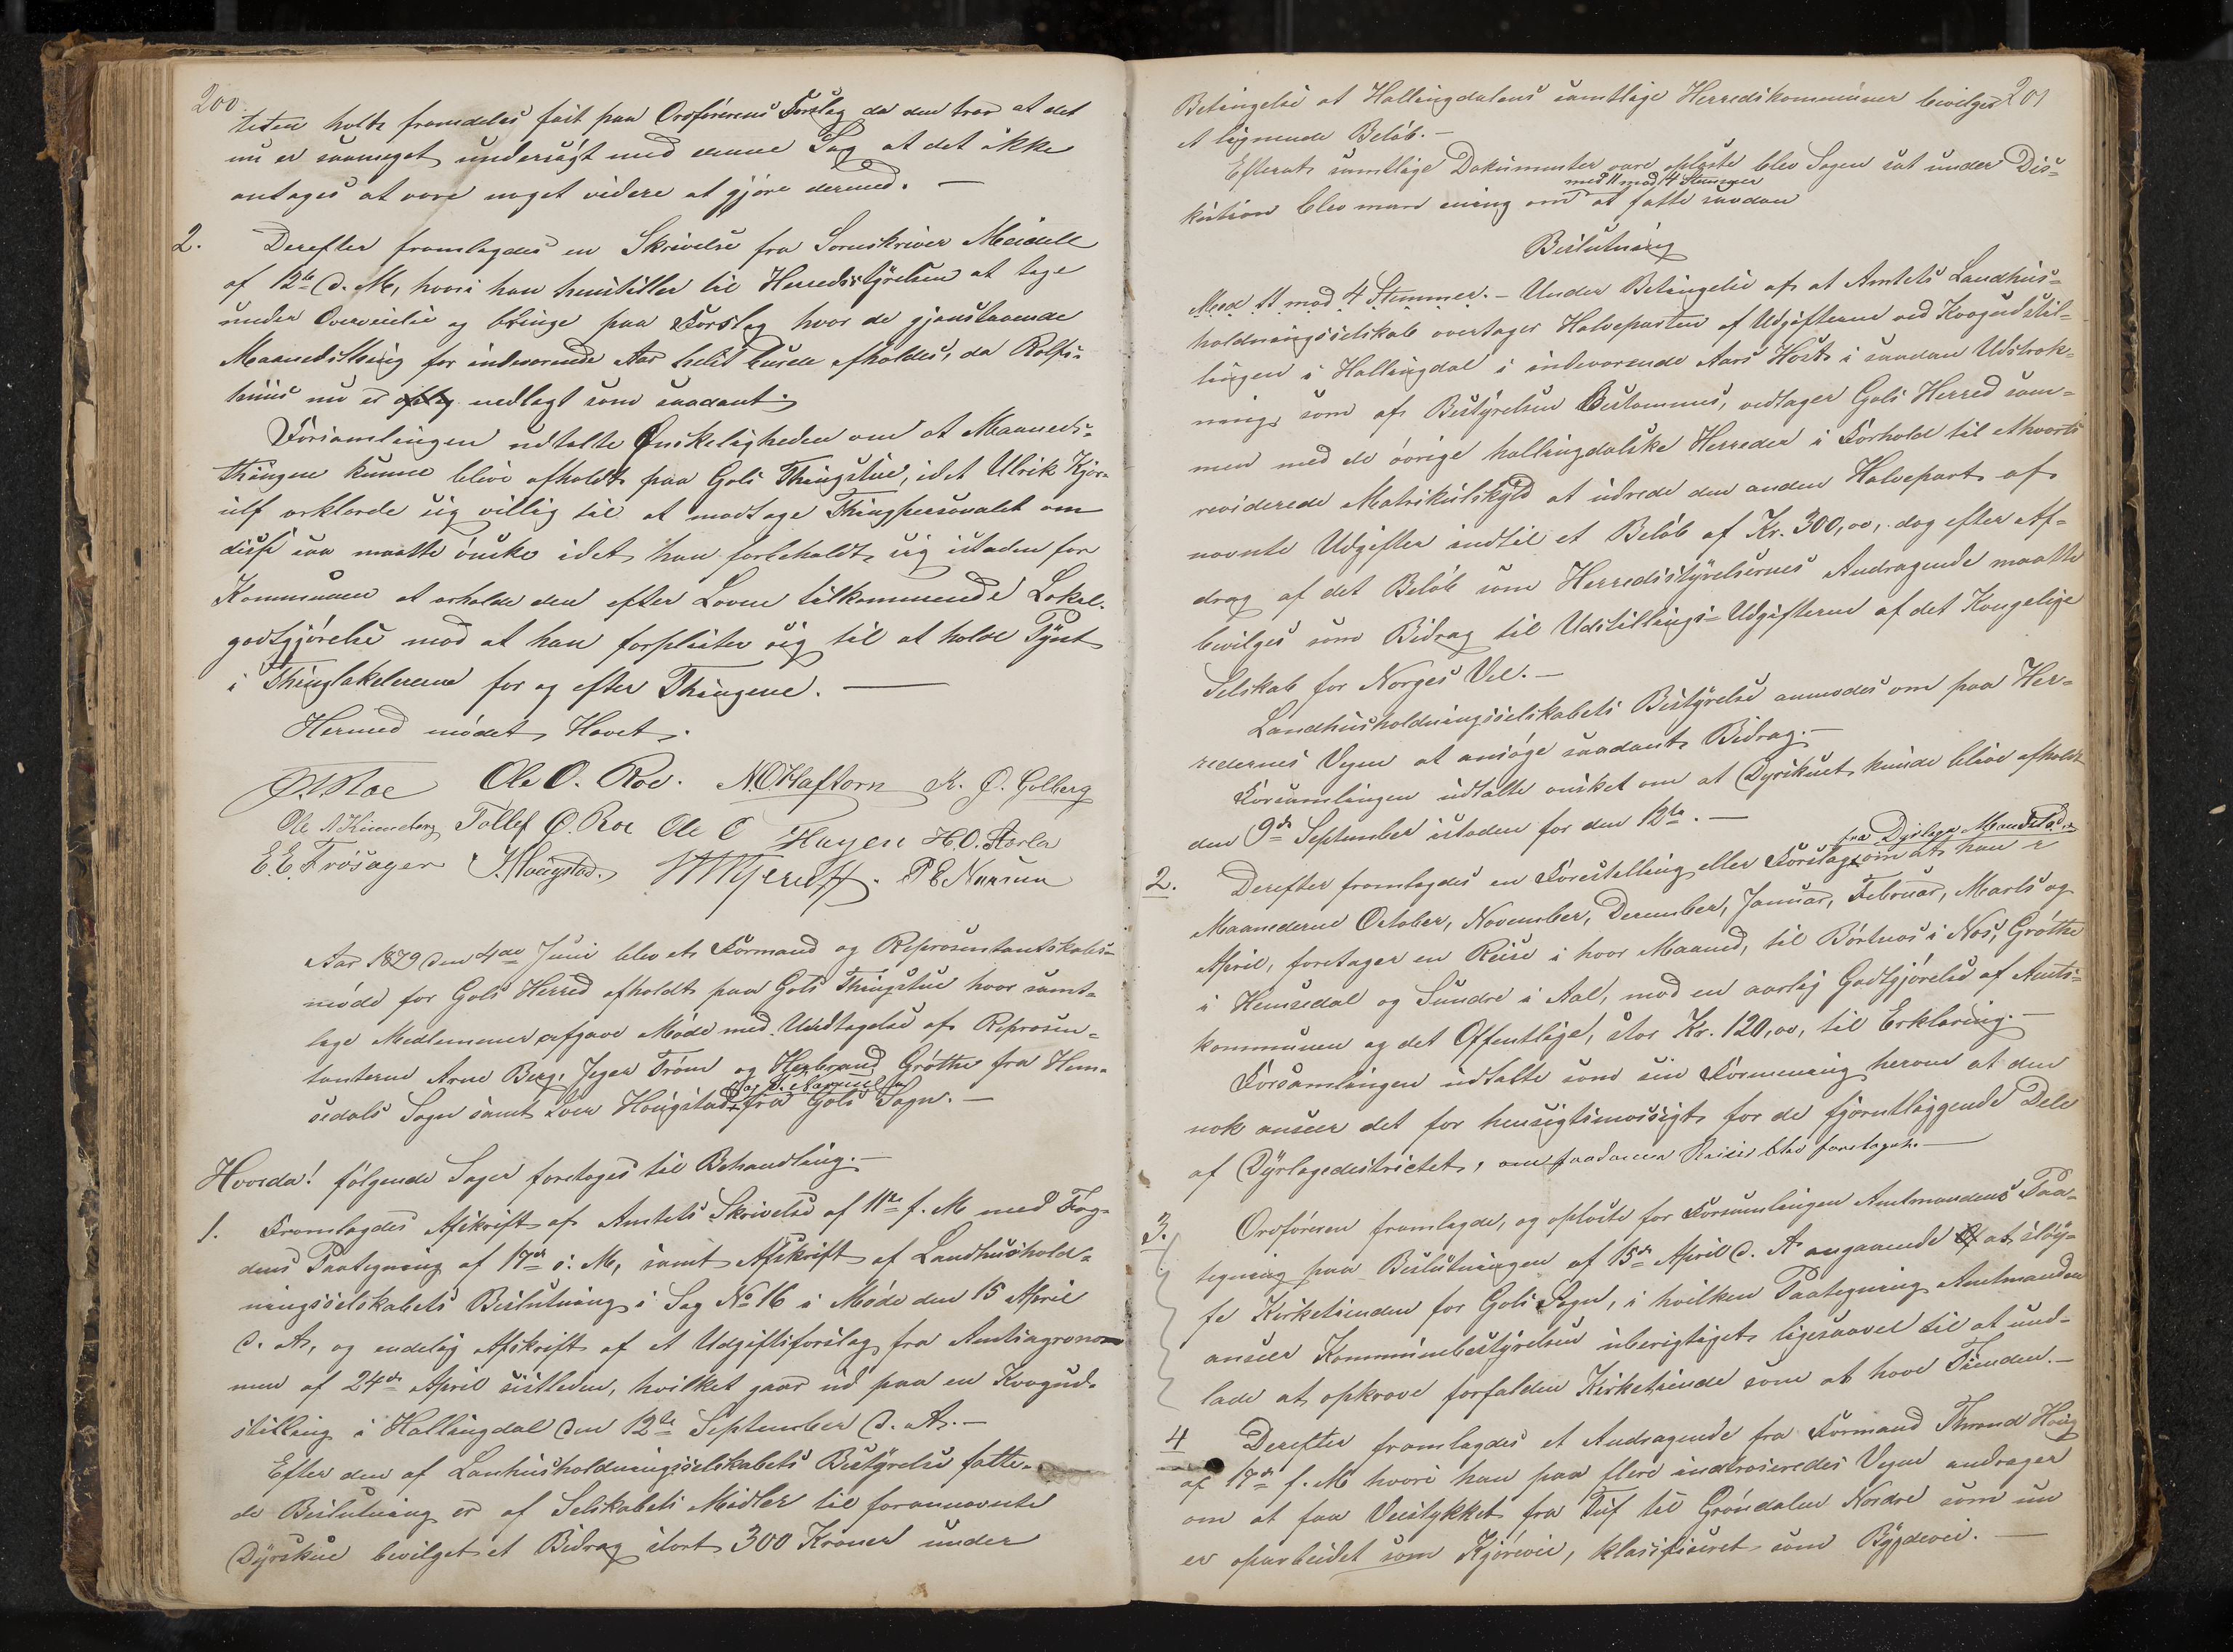 200.
teten holdt fremdeles fast paa Ordførerens Forslag da den tror at det
nu er saameget undersøgt med denne Sag at det ikke
antages at være noget videre at gjøre dermed. —
2. Derefter fremlagdes en Skrivelse fra Sorenskriver Meidell
af 12te d. M, hvori han henstiller til Herredsstyrelsen at tage
under Overveielse og bringe paa Forslag hvor de gjenstaaende
Maanedsthing for indeværende Aar helst burde afholdes, da Rolfs-
huus nu er nedlagt som saadant.
Forsamlingen udtalte Ønskeligheden om at Maaneds-
thingene kunne blive afholdt paa Gols Thingstue, idet Ulrik Kjær-
ulf erklærde sig villig til at modtage Thingpersonalet om
disse saa maatte ønske idet han forbeholdt sig isteden for
Kommunen at erholde den efter Loven tilkommende Lokal-
godtgjørelse mod at han forpligter sig til at holde Pynt
i Thinglokalerne for og efter Thingene. —
Hermed mødet Hævet.
Ole O. Roe. N.O Haftorn K. O. Golberg
Tollef O. Roe Ole O Hagen H.O. Storla
E. E. Frøsager J. Haugstad. P E Narum
Aar 1879 den 4de Juni blev et Formand og Repræsentantskabs-
møde for Gols Herred afholdt paa Gols Thingstue hvor samt-
lige Medlemmer afgave Møde med Undtagelse af Repræsen-
tanterne Arne Berg, Jeger Trøim og Herbrand Grøthe fra Hem-
sedals Sogn samt Iver Hougstad fra Gols Sogn. —
Hvorda! følgende Sager foretoges til Behandling. —
1. Fremlagdes Afskrift af Amtets Skrivelse af 11te f. M med Fog-
dens Paategning af 17de s. M, samt Afskrift af Landhushold-
ningsselskabets Beslutning i Sag No 16 i Møde den 15 April
d. A, og endelig Afskrift af et Udgiftsforslag fra Amtsagrono-
men af 24de April sistleden, hvilket gaar ud paa en Kvægud-
stilling i Hallingdal den 12te September d. A. —
Efter den af Lanhusholdningsselskabets Bestyrelse fatte-
de Beslutning er af Selskabets Midler til forannævnte
Dyrskue bevilget et Bidrag stort 300 Kroner under
201
Betingelse at Hallingdalens samtlige Herredskommuner bevilges
et lignende Beløb. —
Efterat samtlige Dokumenter vare oplæste blev Sagen sat under Dis-
med 11 mod 4 Stemmer
kution blev man enig om at fatte saadan
Beslutning
Med 11 mod 4 Stemmer. — Under Betingelse af at Amtets Landhus-
holdningsselskab overtager Halveparten af Udgifterne ved Kvægudstil-
lingen i Hallingdal i indeværende Aars Høst i saadan Udstræk-
ning, som af Bestyrelsen Bestemmes, vedtager Gols Herred sam-
men med de øvrige hallingdalske Herreder i Forhold til ethverts
reviderede Matrikulskyld at udrede den anden Halvepart af
nævnte Udgifter indtil et Beløb af Kr. 300,00, dog efter Af-
drag af det Beløb som Herredsstyrelsernes Andragende maatte
bevilges som Bidrag til Udstillings-Udgifterne af det Kongelige
Selskab for Norges Vel. —
Landhusholdningsselskabets Bestyrelse anmodes om paa Her-
redernes Vegne at ansøge saadant Bidrag. —
Forsamlingen udtalte ønsket om at Dyrskuet kunde blive afholdt
den 9de September isteden for den 12te. —
fra Dyrlæge Mandstad
2. Derefter fremlagdes en Forestilling eller Forslag om at han i
Maanederne October, November, December, Januar, Februar, Marts og
April, foretager en Reise i hver Maaned, til Børtnæs i Næs, Grøthe
i Hemsedal og Sundre i Aal, mod en aarlig Godtgjørelse af Amts-
kommunen og det Offentlige, stor Kr. 120,00, til Erklæring. —
Forsamlingen udtalte som sin Formening herom at den
nok anseer det for hensigtsmæssigt for de fjerntliggende Dele
af Dyrlægedistrictet, om saadanne Reiser blev foretaget. —
3. Ordføreren fremlagde, og oplæste for Forsamlingen Amtmandens Paa-
tegning paa Beslutningen af 15de April d. A angaaende at sløy-
fe Kirketienden for Gols Sogn, i hvilken Paategning Amtmanden
anseer Kommunebestyrelsen uberigtiget ligesaavel til at und-
lade at opkræve forfalden Kirketiende som at hæve Tienden. —
4 Derefter fremlagdes et Andragende fra Formand Thrond Houg
af 17de f. M hvori han paa flere interesseredes Vegne andrager
om at faa Veistykket fra Tuf til Grøndalen Nordre som nu
er oparbeidet som Kjørevei, klassificeret som Bygdevei. —